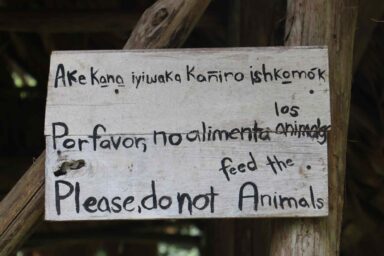 Ake kana iyiwaka Kañiro ishkomok
los
Por favor, no alimenta animals
feed the.
Please, do not Animals